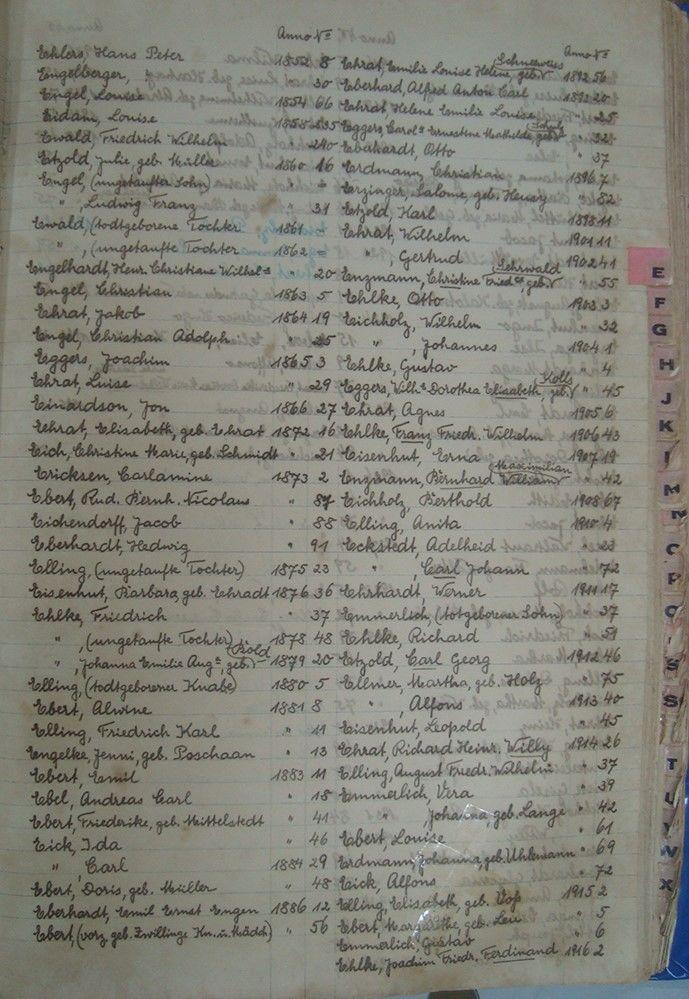 Anno No
Ehlers, Hans Peter 1852 8
Engelberger, " 30
Engel, Louise 1854 66
Eidam, Louise 1858 235
Ewald Friedrich Wilhelm " 240
Etzold, Julie, geb. Müller 1860 16
Engel, (ungetaufter Sohn) " =
" , Ludwig Franz " 31
Ewald (todtgeborene Tochter 1861 =
" , (ungetaufte Tochter 1862 =
Engelhardt, Heinr. Christiane Wilhel= " 20
Engel, Christian 1863 5
Ehrat, Jakob 1864 19
Engel, Christian Adolph " 25
Eggers, Joachim 1865 3
Ehrat, Luise " 29
Einardson, Jon 1866 27
Ehrat, Elisabeth, geb. Ehrat 1872 16
Eich, Christine Marie, geb. Schmidt " 21
Ericksen, Carlamine 1873 2
Ebert, Rud. Bernh. Nicolaus " 87
Eichendorff, Jacob " 88
Eberhardt, Hedwig " 91
Elling, (ungetaufte Tochter) 1875 23
Eisenhut, Barbara, geb. Ehradt 1876 36
Ehlke, Friedrich " 37
" , (ungetaufte Tochter) 1878 48
" , Johanna Emilie Aug=, geb. 1879 20
Elling, (todtgeborener Knabe) 1880 5
Ebert, Alwine 1881 8
Elling, Friedrich Karl " 11
Engelke, Jenni, geb. Poschaan " 13
Ebert, Emil 1883 11
Ebel, Andreas Carl " 18
Ebert, Friederike, geb. Mittelstedt " 41
Eick, Ida " 46
" , Carl 1884 29
Ebert, Doris, geb. Müller " 48
Eberhardt, Emil Ernst Eugen 1886 12
Ebert (vorz. geb. Zwillinge Kn. u. Mädch) " 56
Anno No
Schneeweis
Ehrat, Emilie Louise Helene, geb. 1892 56
Eberhard, Alfred Anton Carl 1892 20
Ehrat, Helene Emilie Louise " 25
Eggers, Carol= Ernestine Mathilde, geb. " 32
Ebahardt, Otto " 37
Erdmann, Christian 1896 7
Erzinger, Salome, geb. " 82
Etzold, Karl 1898 11
Ehrat, Wilhelm 1901 11
" , Gertrud 1902 41
Sehrwald
Enzmann, Christine Fried=, geb. " 55
Ehlke, Otto 1903 3
Eichholz, Wilhelm " 32
" , Johannes 1904 1
Ehlke, Gustav " 4
Kolls
Eggers, Wilh= Dorothea Elisabeth, geb. " 45
Ehrat, Agnes 1905 6
Ehlke, Franz Friedr. Wilhelm 1906 43
Eisenhut, Erna 1907 19
Maximilian
Enzmann, Bernhard William " 42
Eichholz, Berthold 1908 67
Elling, Anita 1910 4
Eckstedt, Adelheid " 23
" , Carl Johann " 72
Ehrhardt, Werner 1911 17
Emmerlich, (totgeborener Sohn) " 37
Ehlke, Richard " 51
Etzold, Carl Georg 1912 46
Ellmer, Martha, geb. Holz " 75
" , Alfons 1913 40
Eisenhut, Leopold " 45
Ehrat, Richard Heinr. Willy 1914 26
Elling, August Friedr. Wilhelm " 37
Emmerlich, Vera " 39
" , Johanna, geb. Lange " 42
Ebert, Louise " 61
Erdmann, Johanna, geb. Uhlemann " 69
Eick, Alfons " 72
Elling, Elisabeth, geb. Voß 1915 2
Ebert, Margarethe, geb. Leu " 5
Emmerlich, Gustav " 6
Ehlke, Joachim Friedr. Ferdinand 1916 2
E
F
G
H
J
K
L
M
N
O
P
S
T
U
W
X